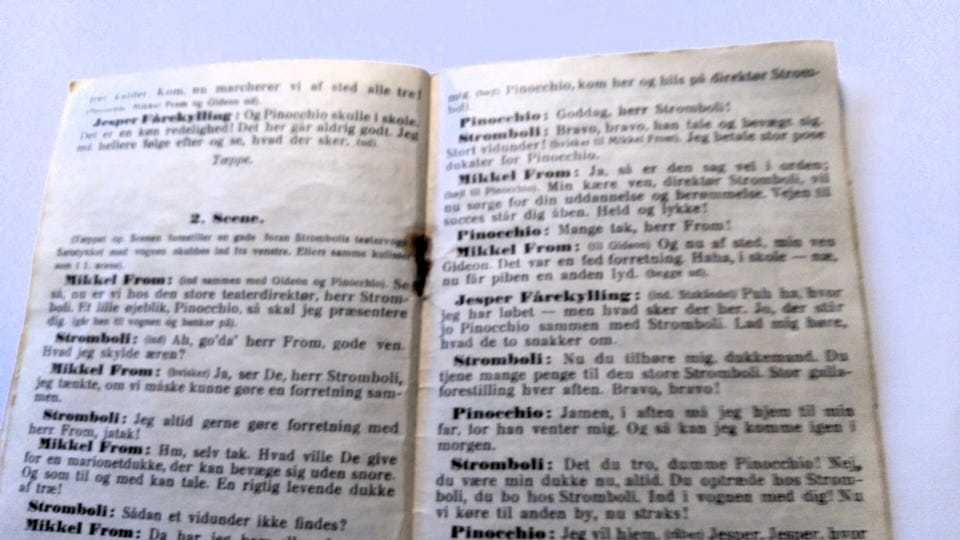 Kom, nu marcherer vi af sted alle tre!
Mikkel From og Gideon ud).
Jesper Fårekylling: Og Pinocchio skulle i skole.
Det er en køn redelighed! Det her går aldrig godt. Jeg
må hellere følge efter og se, hvad der sker. (ud).
Tæppe.
2. Scene.
(Tæppet op. Scenen forestiller en gade foran Strombolis teatervogn.
Sætstykket med vognen skubbes ind fra venstre. Ellers samme kulisser
som i 1. scene).
Mikkel From: (ind sammen med Gideon og Pinocchio). Se
så, nu er vi hos den store teaterdirektør, herr Strom-
boli. Et lille øjeblik, Pinocchio, så skal jeg præsentere
dig. (går hen til vognen og banker på).
Stromboli: (ind) Ah, go'da' herr From, gode ven.
Hvad jeg skylde æren?
Mikkel From: (hvisker) Ja, ser De, herr Stromboli,
jeg tænkte, om vi måske kunne gøre en forretning sam-
men.
Stromboli: Jeg altid gerne gøre forretning med
herr From, jatak!
Mikkel From: Hm, selv tak. Hvad ville De give
for en marionetdukke, der kan bevæge sig uden snore.
Og som til og med kan tale. En rigtig levende dukke
af træ!
Stromboli: Sådan et vidunder ikke findes?
Mikkel From: Da har jeg ham
mig. (højt) Pinocchio, kom her og hils på direktør Strom-
boli.
Pinocchio: Goddag, herr Stromboli!
Stromboli: Bravo, bravo, han tale og bevæge sig.
Stort vidunder! (hvisker til Mikkel From). Jeg betale stor pose
dukater for Pinocchio.
Mikkel From: Ja, så er den sag vel i orden;
(højt til Pinocchio). Min kære ven, direktør Stromboli, vil
nu sørge for din uddannelse og berømmelse. Vejen til
succes står dig åben. Held og lykke!
Pinocchio: Mange tak, herr From!
Mikkel From: (til Gideon) Og nu af sted, min ven
Gideon. Det var en fed forretning. Haha, i skole — næ,
nu får piben en anden lyd. (begge ud).
Jesper Fårekylling: (ind. Stakåndet) Puh ha, hvor
jeg har løbet — men hvad sker der her. Jo, der står
jo Pinocchio sammen med Stromboli. Lad mig høre,
hvad de to snakker om.
Stromboli: Nu du tilhøre mig, dukkemand. Du
tjene mange penge til den store Stromboli. Stor galla-
forestilling hver aften. Bravo, bravo!
Pinocchio: Jamen, i aften må jeg hjem til min
far, for han venter mig. Og så kan jeg komme igen i
morgen.
Stromboli: Det du tro, dumme Pinocchio! Nej,
du være min dukke nu, altid. Du optræde hos Strom-
boli, du bo hos Stromboli. Ind i vognen med dig! Nu
vi køre til anden by, nu straks!
Pinocchio: Jeg vil hjem. (råber) Jesper, Jesper, hvor